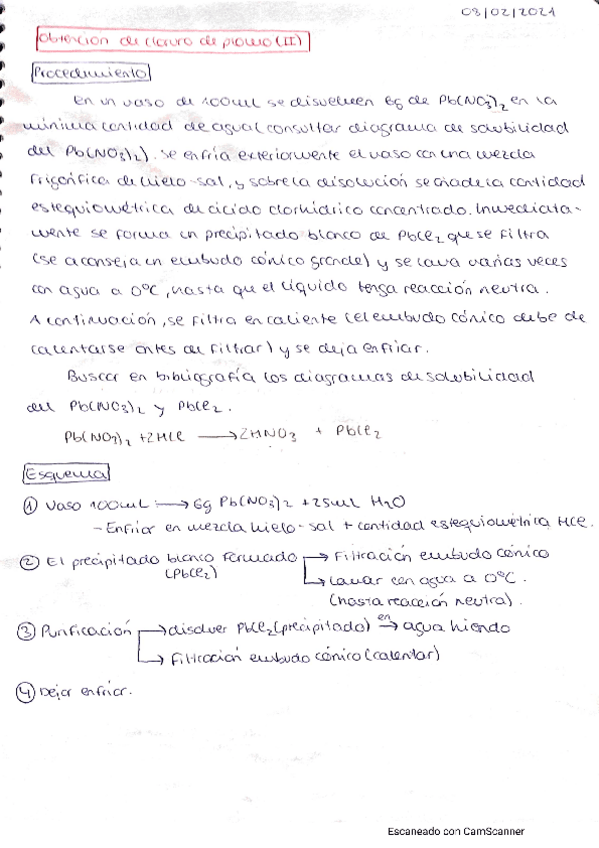 03/02/2021
Obtención de cloruro de plomo (II)
Procedimiento
En un vaso de 100mL se disuelven 6g de Pb(NO3)2 en la
mínima cantidad de agua (consultar diagrama de solubilidad
del Pb(NO3)2). Se enfría exteriormente el vaso con una mezcla
frigorífica de hielo-sal, y sobre la disolución se añade la cantidad
estequiométrica de ácido clorhídrico concentrado. Inmediata-
mente se forma un precipitado blanco de PbCl2 que se filtra
(se aconseja un embudo cónico grande) y se lava varias veces
con agua a 0ºC, hasta que el líquido tenga reacción neutra.
A continuación, se filtra en caliente (el embudo cónico debe de
calentarse antes de filtrar) y se deja enfriar.
Buscar en bibliografía los diagramas de solubilidad
del Pb(NO3)2 y PbCl2.
Pb(NO3)2 + 2HCl → 2HNO3 + PbCl2
Esquema
① Vaso 100mL → 6g Pb(NO3)2 + 25mL H2O
- Enfriar en mezcla hielo-sal + cantidad estequiométrica HCl.
② El precipitado blanco formado → Filtración embudo cónico
(PbCl2) ↳ Lavar con agua a 0ºC.
(hasta reacción neutra).
③ Purificación → disolver PbCl2 (precipitado) en → agua hiendo
↳ Filtración embudo cónico (calentar)
④ Dejar enfriar.
Escaneado con CamScanner